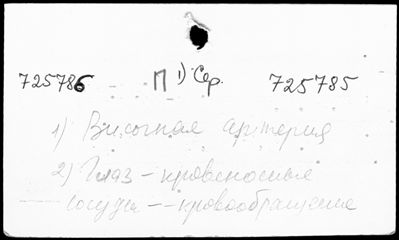 725786 П 1) Сер. 725785
1) Височная артерия
2) Глаз - кровеносные
сосуды -- кровообращение